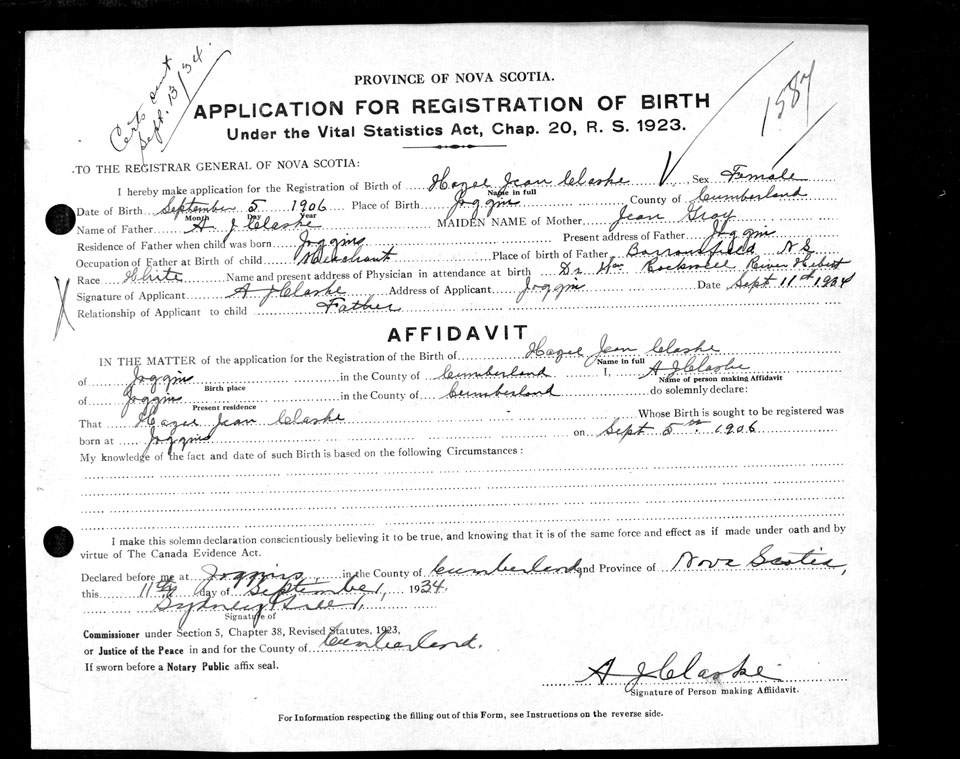 Certs sent
Sept. 13/34.
1587
PROVINCE OF NOVA SCOTIA.
APPLICATION FOR REGISTRATION OF BIRTH
Under the Vital Statistics Act, Chap. 20, R. S. 1923.
TO THE REGISTRAR GENERAL OF NOVA SCOTIA:
I hereby make application for the Registration of Birth of Hazel Jean Clarke Sex Female
Name in full
Date of Birth September 5 1906 Place of Birth Joggins County of Cumberland
Month Day Year
Name of Father A J Clarke MAIDEN NAME of Mother Jean Gray
Residence of Father when child was born Joggins Present address of Father Joggins
Occupation of Father at Birth of child Merchant Place of birth of Father Barronsfield N.S.
Race White Name and present address of Physician in attendance at birth Dr. Wm Rockwell River Hebert
Signature of Applicant A J Clarke Address of Applicant Joggins Date Sept 11th 1934
Relationship of Applicant to child Father
AFFIDAVIT
IN THE MATTER of the application for the Registration of the Birth of Hazel Jean Clarke
Name in full
of Joggins in the County of Cumberland I, A J Clarke
Birth place Name of person making Affidavit
of Joggins in the County of Cumberland do solemnly declare:
Present residence
That Hazel Jean Clarke Whose Birth is sought to be registered was
born at Joggins on Sept 5th 1906
My knowledge of the fact and date of such Birth is based on the following Circumstances:
I make this solemn declaration conscientiously believing it to be true, and knowing that it is of the same force and effect as if made under oath and by
virtue of The Canada Evidence Act.
Declared before me at Joggins in the County of Cumberland and Province of Nova Scotia,
this 11th day of September, 1934.
Sydney
Signature of
Commissioner under Section 5, Chapter 38, Revised Statutes, 1923,
or Justice of the Peace in and for the County of Cumberland.
If sworn before a Notary Public affix seal.
A J Clarke
Signature of Person making Affidavit.
For Information respecting the filling out of this Form, see Instructions on the reverse side.